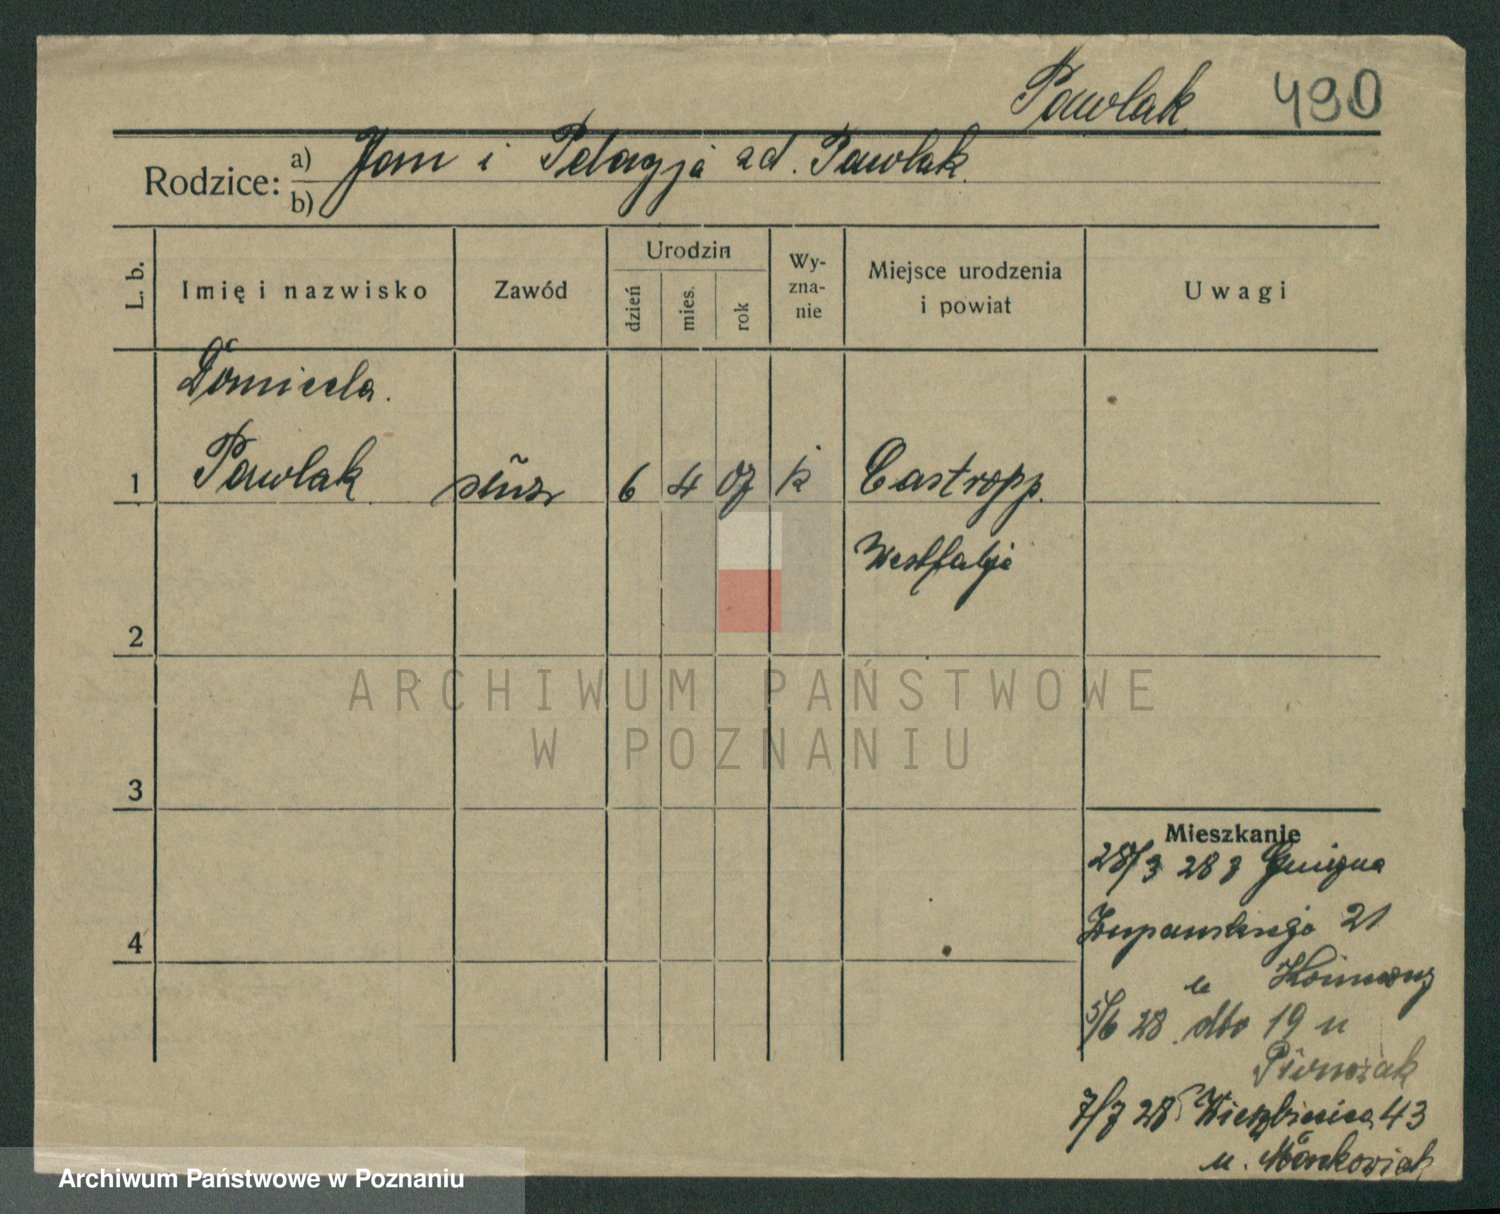 Pawlak 490
Rodzice: a) Jan i Pelagja zd. Pawlak
b)
L. b.
Imię i nazwisko
Zawód
Urodzin
dzień
mies.
rok
Wy-
zna-
nie
Miejsce urodzenia
i powiat
Uwagi
Domicela
1 Pawlak służ 6 4 07 k Castropp.
Westfalja
2
ARCHIWUM PAŃSTWOWE
W POZNANIU
3
Mieszkanie
28/3 28 z Gniezna
Żupańskiego 21
4
5/6 28 dto 19 u
Piernozak
7/7 28 Wierzbięcice 43
u. Mańkowiak
Archiwum Państwowe w Poznaniu